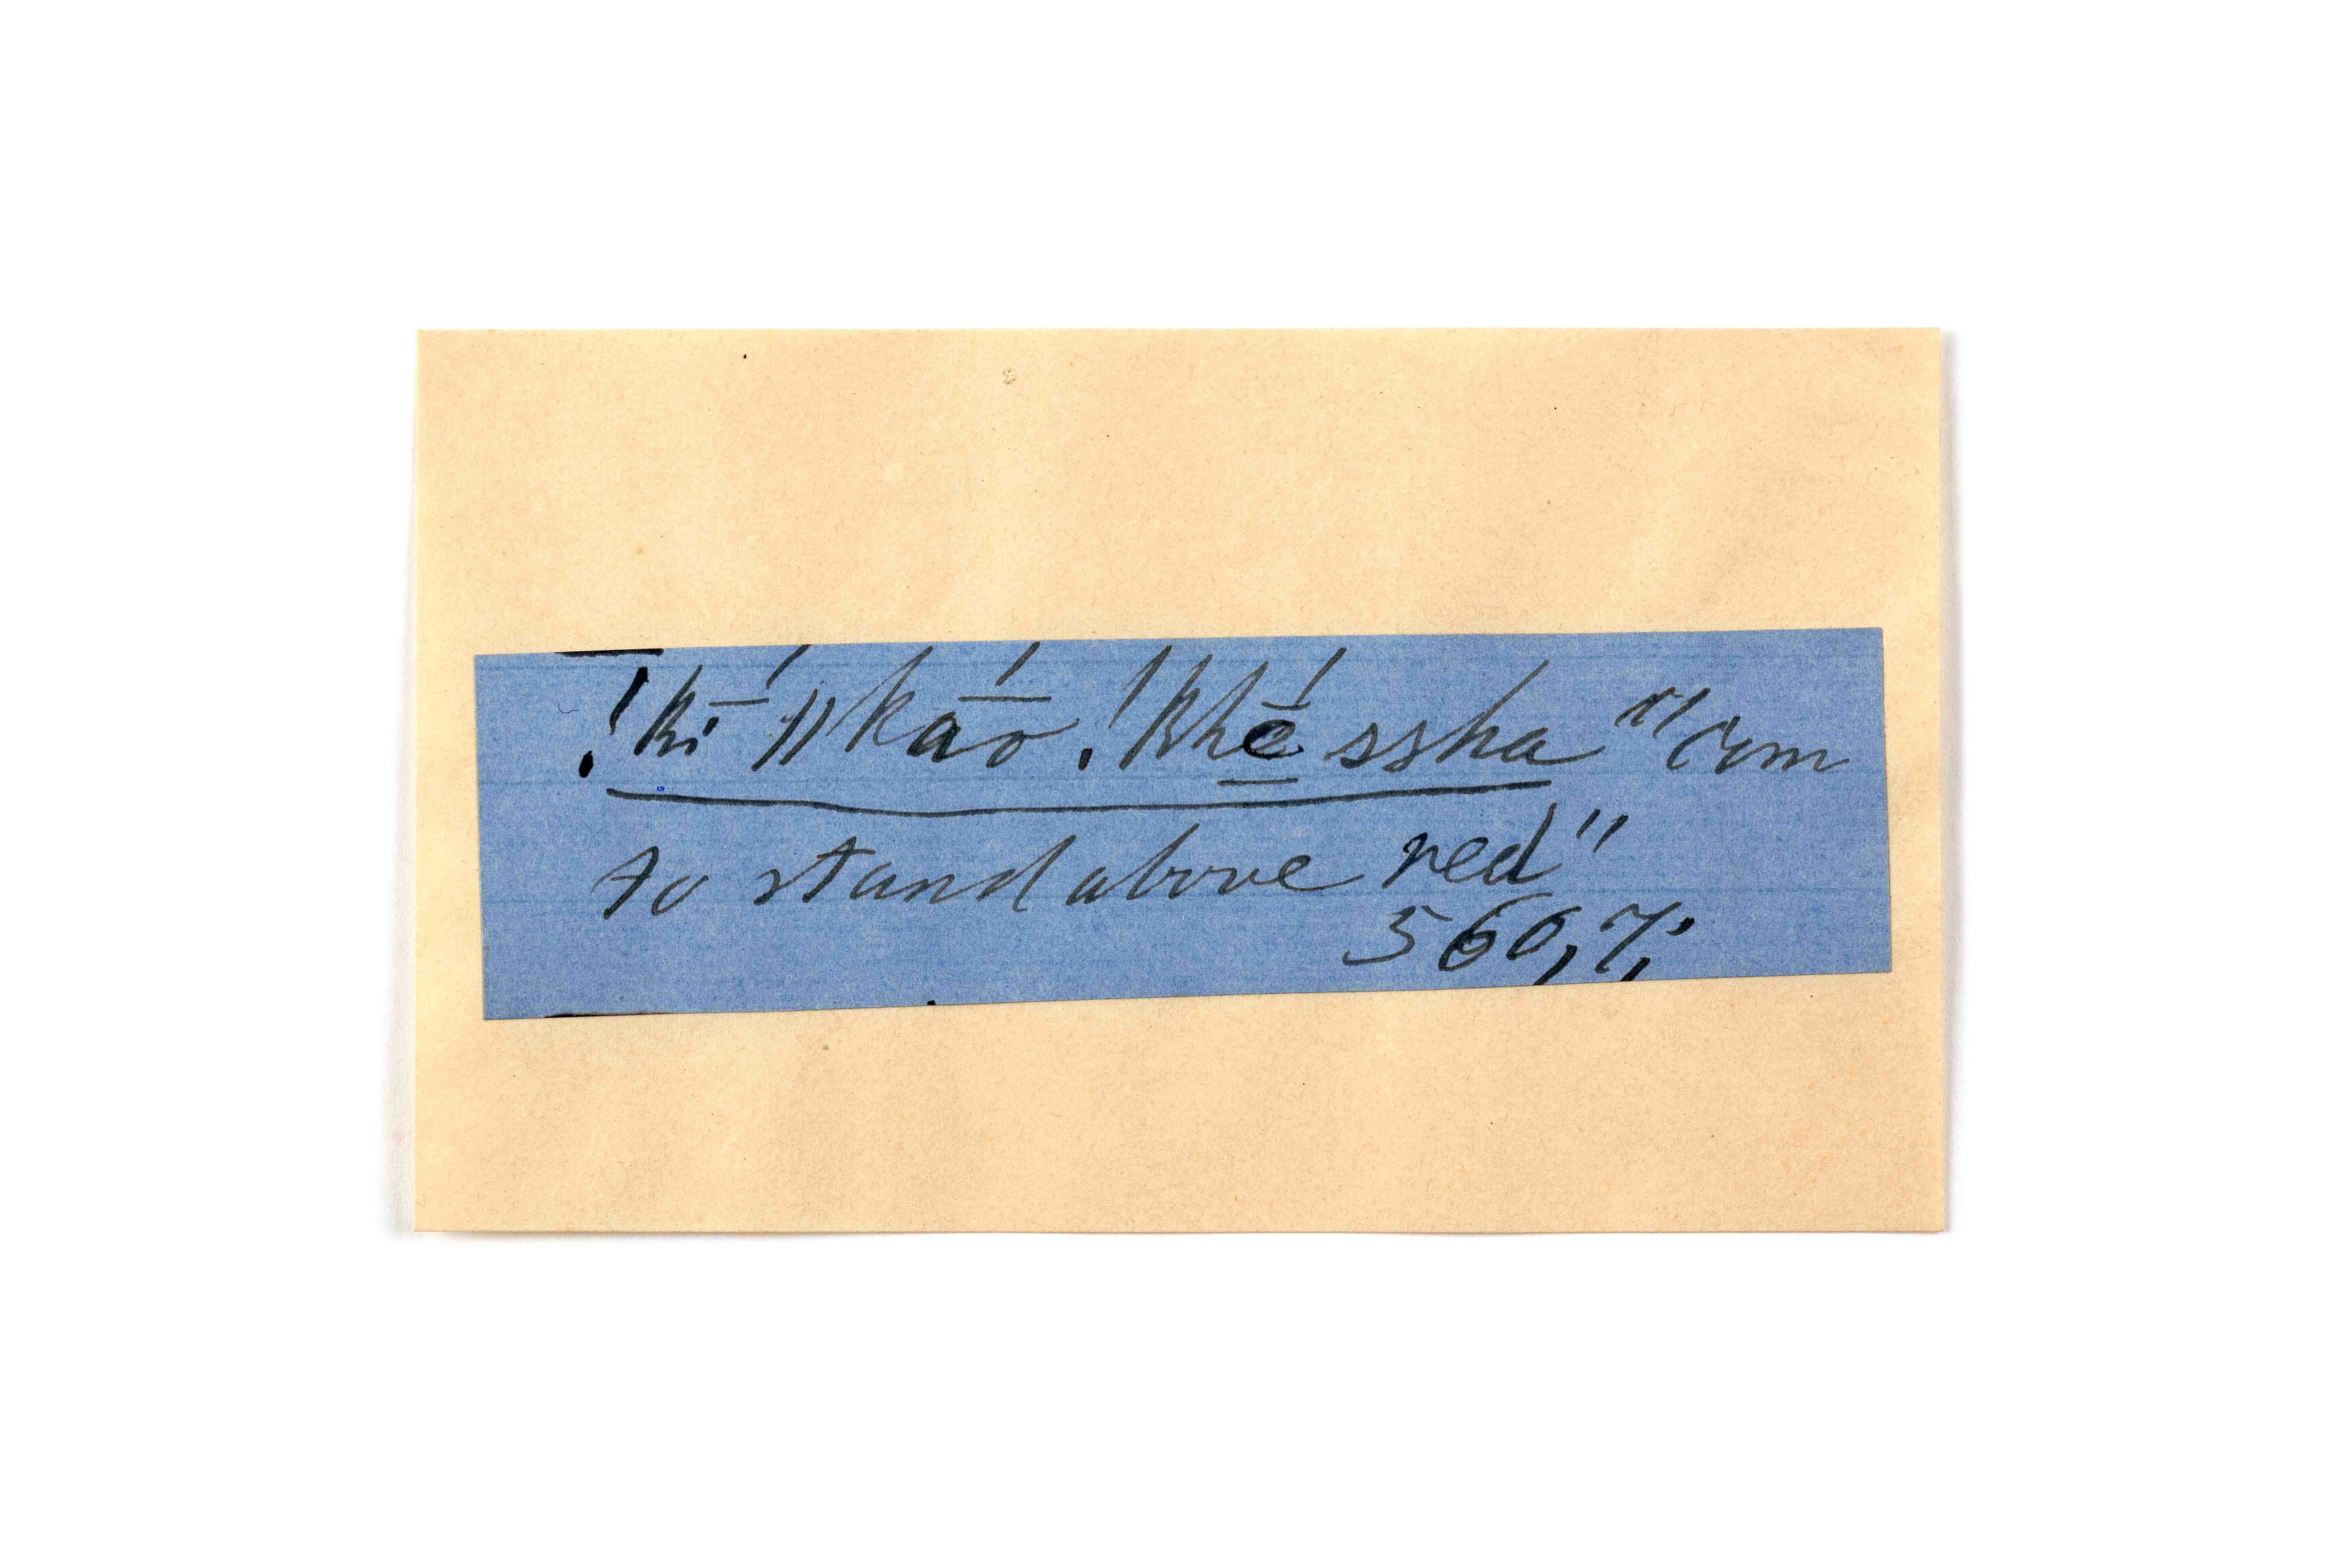 !kī́ ǁkā́o !khḗ̱ ssha "Com
to stand above red"
560,7;